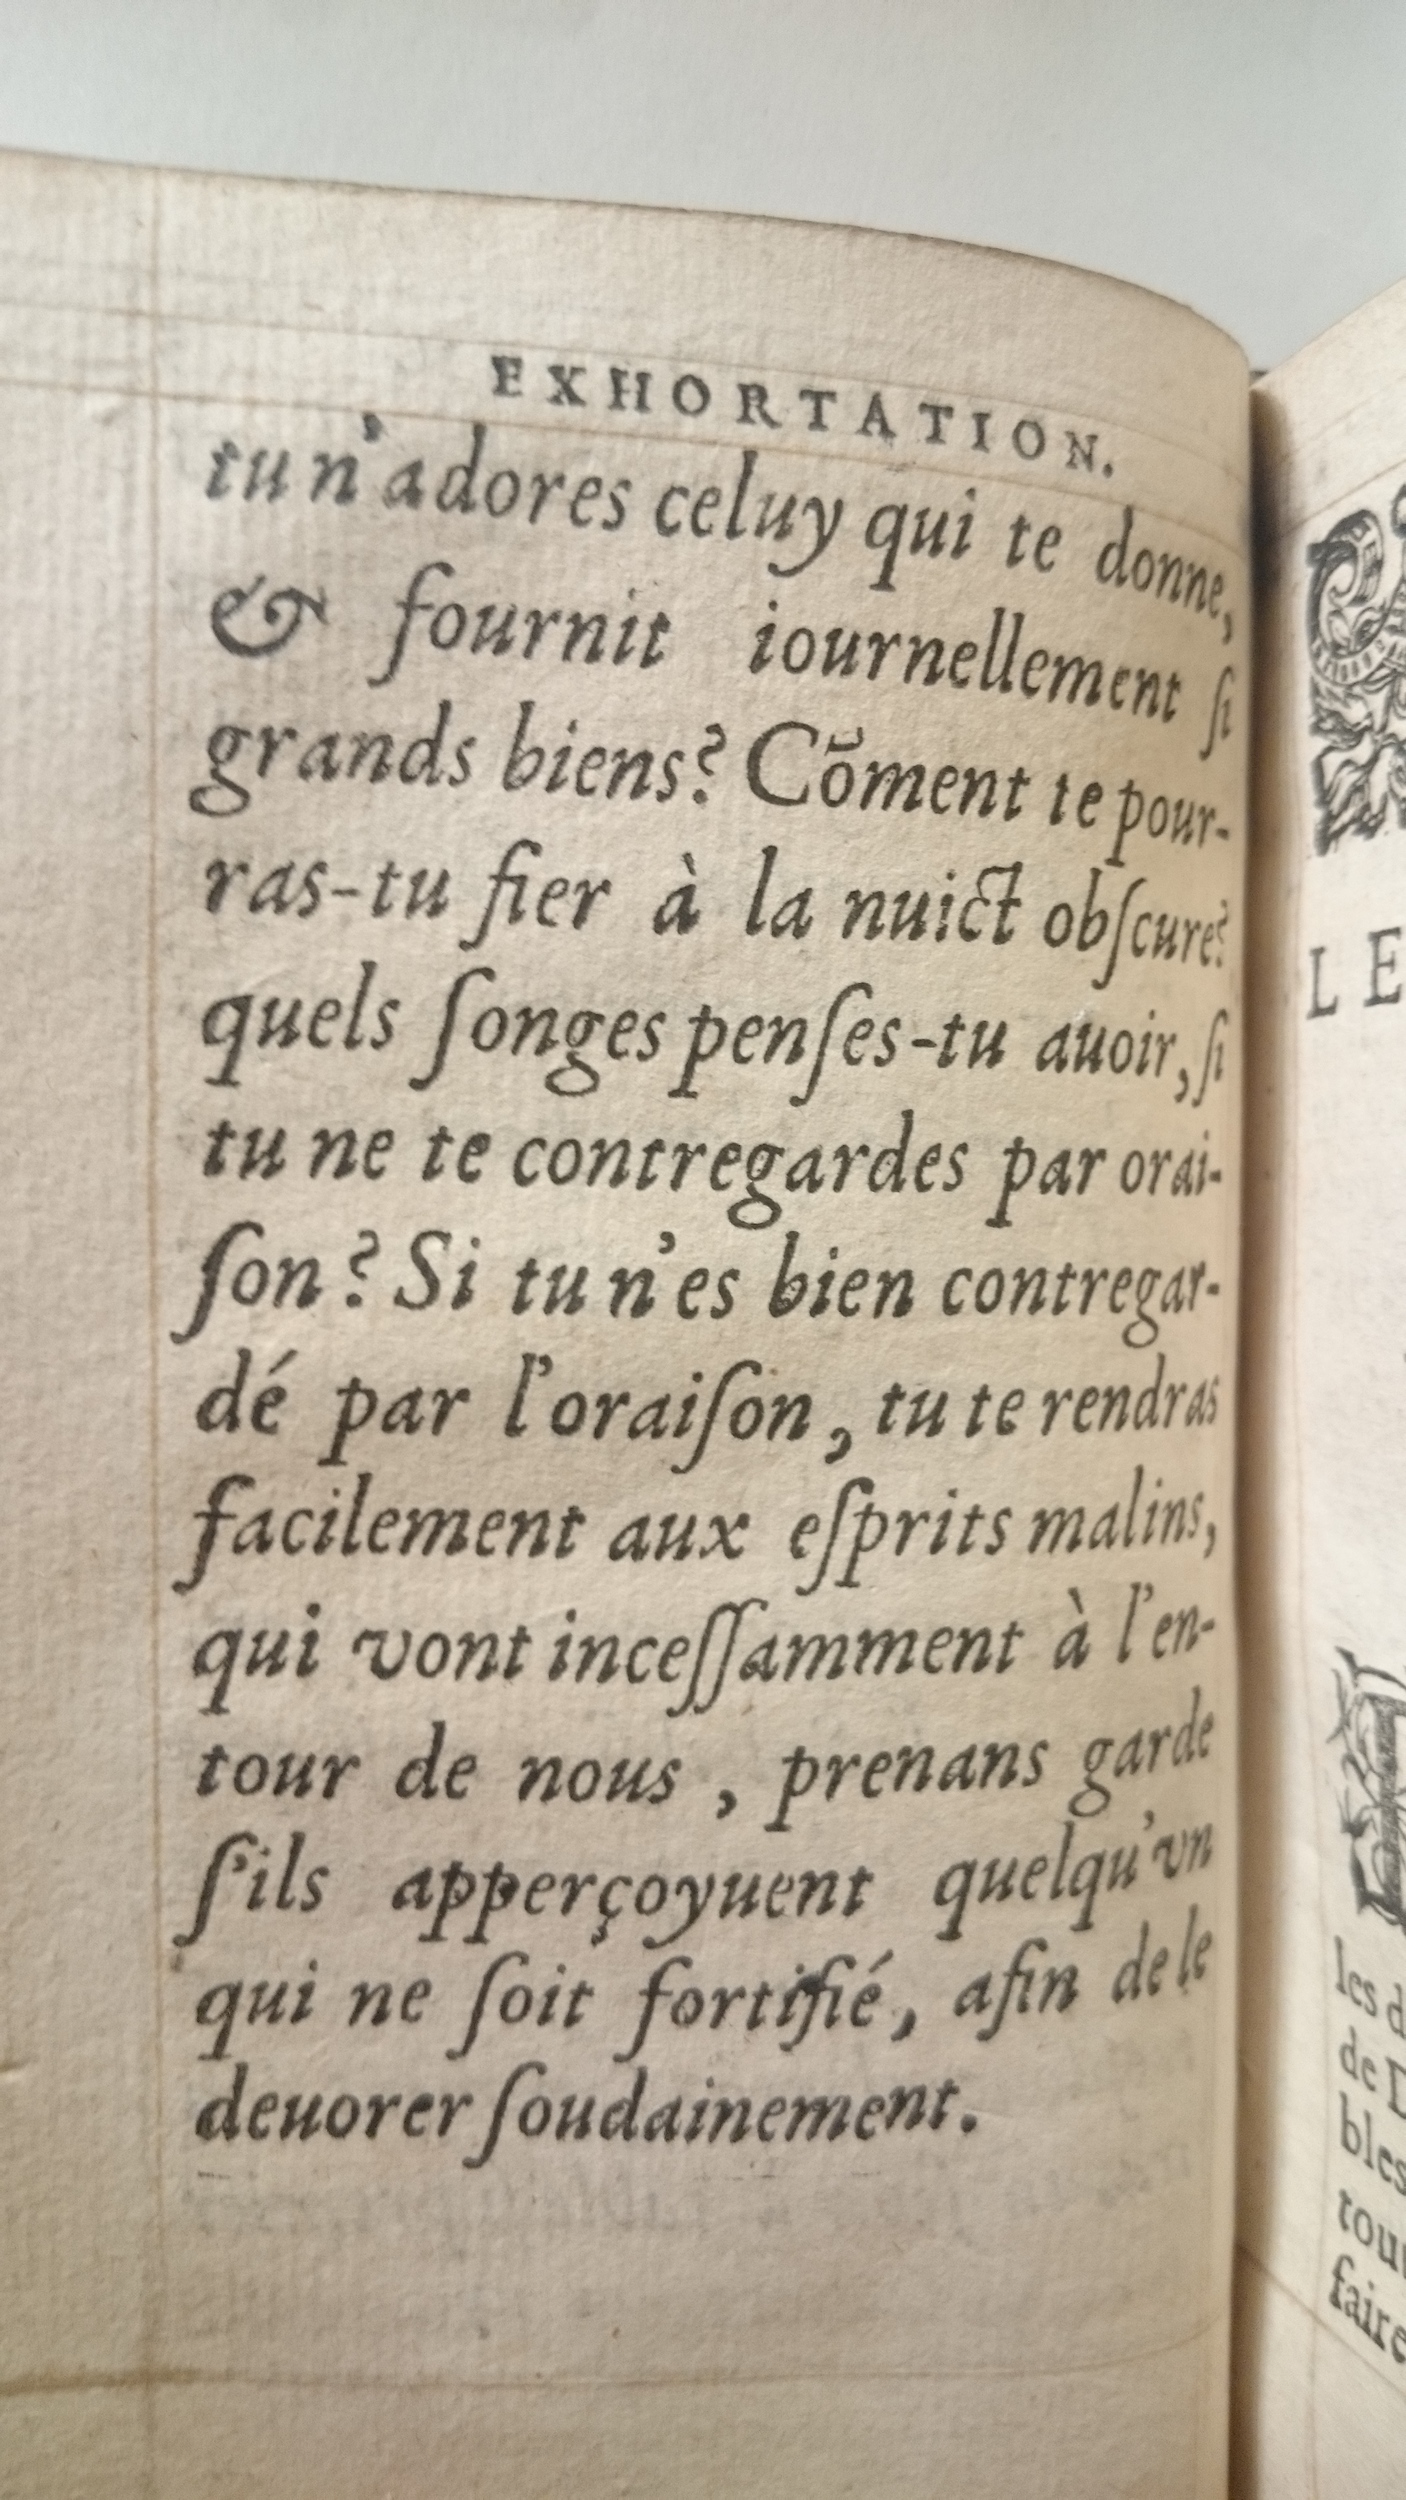 EXHORTATION.
tu n'adores celuy qui te donne,
& fournit iournellement ſi
grands biens? Cõment te pour-
ras-tu fier à la nuict obſcure?
quels ſonges penſes-tu auoir, ſi
tu ne te contregardes par orai-
ſon? Si tu n'es bien contregar-
dé par l'oraiſon, tu te rendras
facilement aux eſprits malins,
qui vont inceſſamment à l'en-
tour de nous, prenans garde
ſ'ils apperçoyuent quelqu'vn
qui ne ſoit fortifié, afin de le
deuorer ſoudainement.
LE
les d
de D
bles
tout
faire